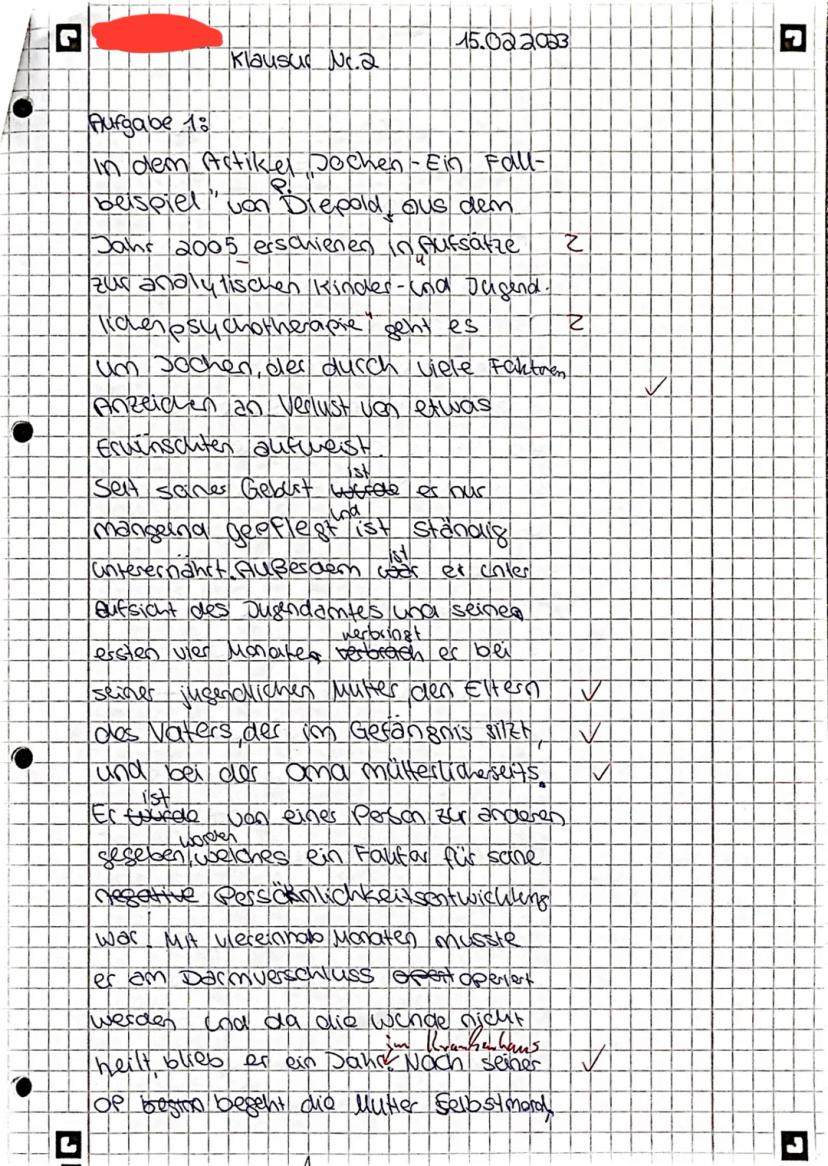 15.02.2023
Klausur Nr.2
Aufgabe 1:
In dem Artikel „Jochen - Ein Fall-
beispiel" von P. Diepold, aus dem
Jahr 2005 erschienen in „Aufsätze Z
zur analytischen Kinder- und Jugend-
lichenpsychotherapie" geht es Z
um Jochen, der durch viele Faktoren
Anzeichen an Verlust von etwas ✓
Erwünschten aufweist.
Seit seiner Geburt wurde ist er nur
mangelnd gepflegt und ist ständig
unterernährt. Außerdem war ist er unter
Aufsicht des Jugendamtes und seine
ersten vier Monate verbrach verbringt er bei
seiner jugendlichen Mutter, den Eltern ✓
des Vaters, der im Gefängnis sitzt, ✓
und bei der Oma mütterlicherseits. ✓
Er wurde ist von einer Person zur anderen
gegeben worden, welches ein Faktor für seine
negative Persönlichkeitsentwicklung
war. Mit viereinhalb Monaten musste
er am Darmverschluss opert operiert
werden und da die Wunde nicht
heilt, blieb er ein Jahr im Krankenhaus. Nach seiner ✓
OP begann begeht die Mutter Selbstmord,